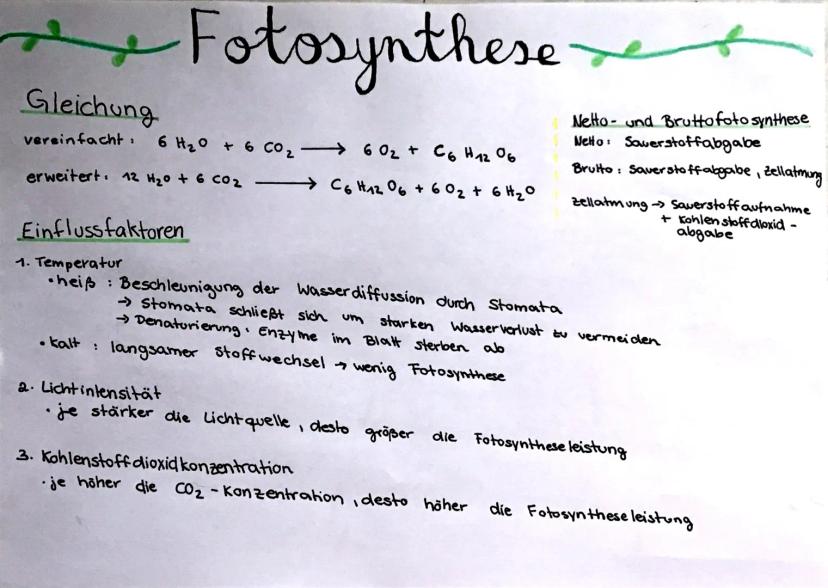 Fotosynthese
Gleichung
vereinfacht: 6 H₂O + 6 CO₂ ⟶ 6 O₂ + C₆ H₁₂ O₆
erweitert: 12 H₂O + 6 CO₂ ⟶ C₆ H₁₂ O₆ + 6 O₂ + 6 H₂O
Netto- und Bruttofotosynthese
Netto: Sauerstoffabgabe
Brutto: Sauerstoffabgabe, Zellatmung
Zellatmung → Sauerstoffaufnahme
+ Kohlenstoffdioxid-
abgabe
Einflussfaktoren
1. Temperatur
• heiß: Beschleunigung der Wasserdiffussion durch Stomata
→ Stomata schließt sich um starken Wasserverlust zu vermeiden
→ Denaturierung: Enzyme im Blatt sterben ab
• kalt: langsamer Stoffwechsel → wenig Fotosynthese
2. Lichtintensität
• je stärker die Lichtquelle, desto größer die Fotosyntheseleistung
3. Kohlenstoffdioxidkonzentration
• je höher die CO₂-Konzentration, desto höher die Fotosyntheseleistung